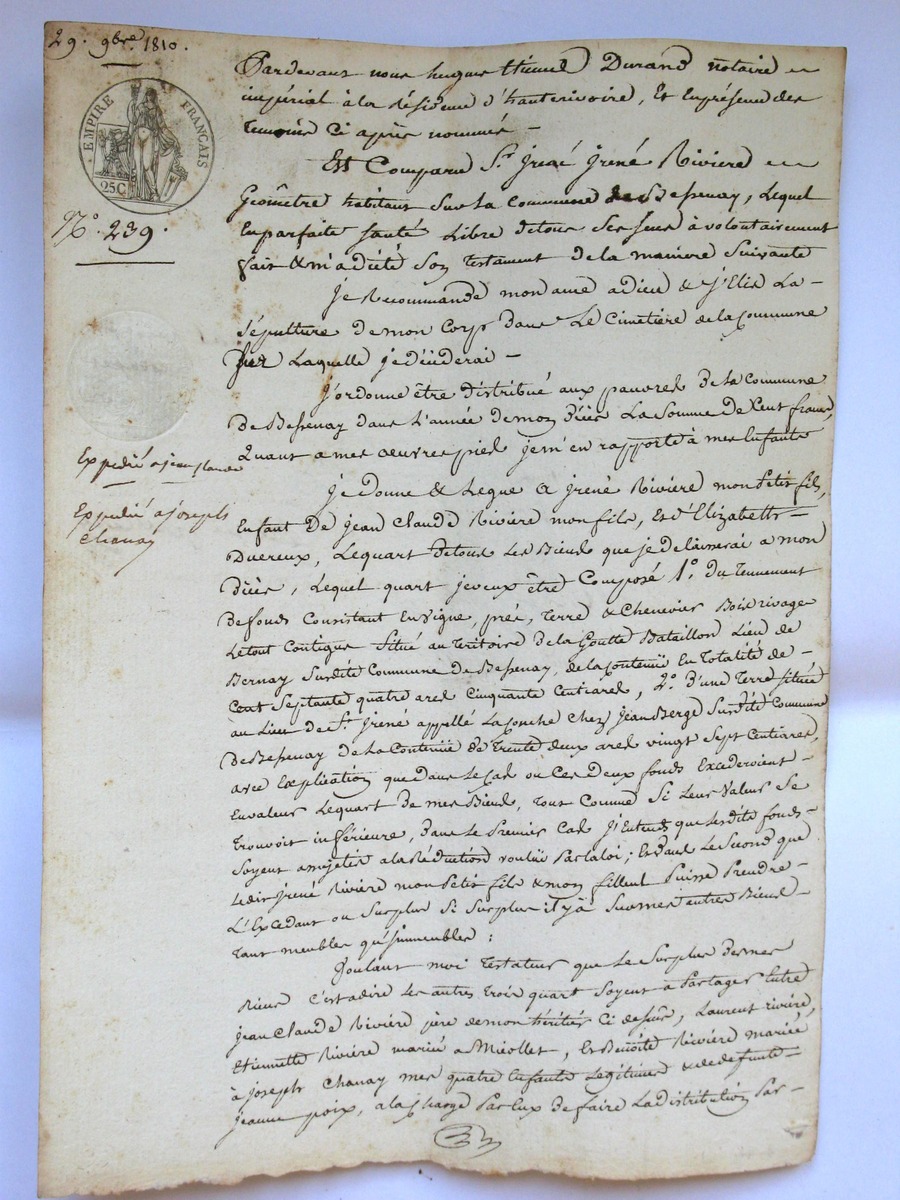 29. 9bre. 1810.
EMPIRE FRANÇAIS
25C
N.º 239.
Expedié a jean claude
Expedié a joseph
Chanay
Pardevant nous hugue Etienne Durand notaire
imperial à la Résidence d'hauterivoire, Et Enprésence des
Temoins Ci après nommés –
Est Comparu S.r jrené Riviere
Geômetre habitant Sur la Commune de Bessenay, Lequel
Enparfaite Santé Libre detous Ses Sens à volontairement
fait & m'a dicté Son Testament de la maniere Suivante
Je Recommande mon ame adieu & j'Elis La
Sépulture de mon Corps dans Le Cimetière de la Commune
Sur Laquelle je décéderai –
J'ordonne être distribué aux pauvres de la Commune
de Bessenay dans L'année de mon décès La Somme de Cent francs,
Quant a mes oeuvres pies je m'en rapporte à mes Enfants
Je donne & Legue a jrené Rivière mon Petit fils,
Enfant De jean Claude Rivière mon fils, Et d'Elizabeth
Duereux, Lequart detous Les Biens que je delaisserai a mon
Décès, Lequel quart jeveux être Composé 1.º du Tennement
de fonds Consistant Envigne, prés, Terre & Chenevier Bois rivage
Letout Contigue Situé au Territoire de la Goutte Bataillon Lieu de
Bernay Surdite Commune de Bessenay, de la Contenüe En Totalité de
Cent Septante quatre ares Cinquante Centiares, 2.º d'une Terre Située
au Lieu de S.t jrené appellé La jonche chez jean Berge Surdite Commune
de Bessenay de la Contenüe de Trente deux ares vingt Sept Centiares,
avec Explication que dans Le Cas ou Ces Deux fonds Excederoient
Envaleur Lequart De mes Biens, Tout Comme Si Leur Valeur Se
Trouvoit inférieure, Dans Le Premier Cas J'Entends que Lesdits fonds
Soyent assujetis a la Réduction voulüe Par la loi; Et dans Le Second que
Ledit jrené Rivière mon Petit fils & mon filleul Puisse Prendre
L'Excedant ou Surplus Si Surplus il y à Sur mes autres Biens
Tant meubles qu'jmmeubles :
Voulant moi Testateur que Le Surplus Demes
Biens C'est adire Les autres Trois quart Soyent à Partager Entre
jean Claude Rivière père de mon héritier Ci dessus, Laurent rivière,
Etiennette Rivière mariée a Miollet, Et Benoîte Rivière mariée
à joseph Chanay mes quatre Enfants Légitimes & de defunte
jeanne poix, a la Charge Par Eux De faire La distribution Par